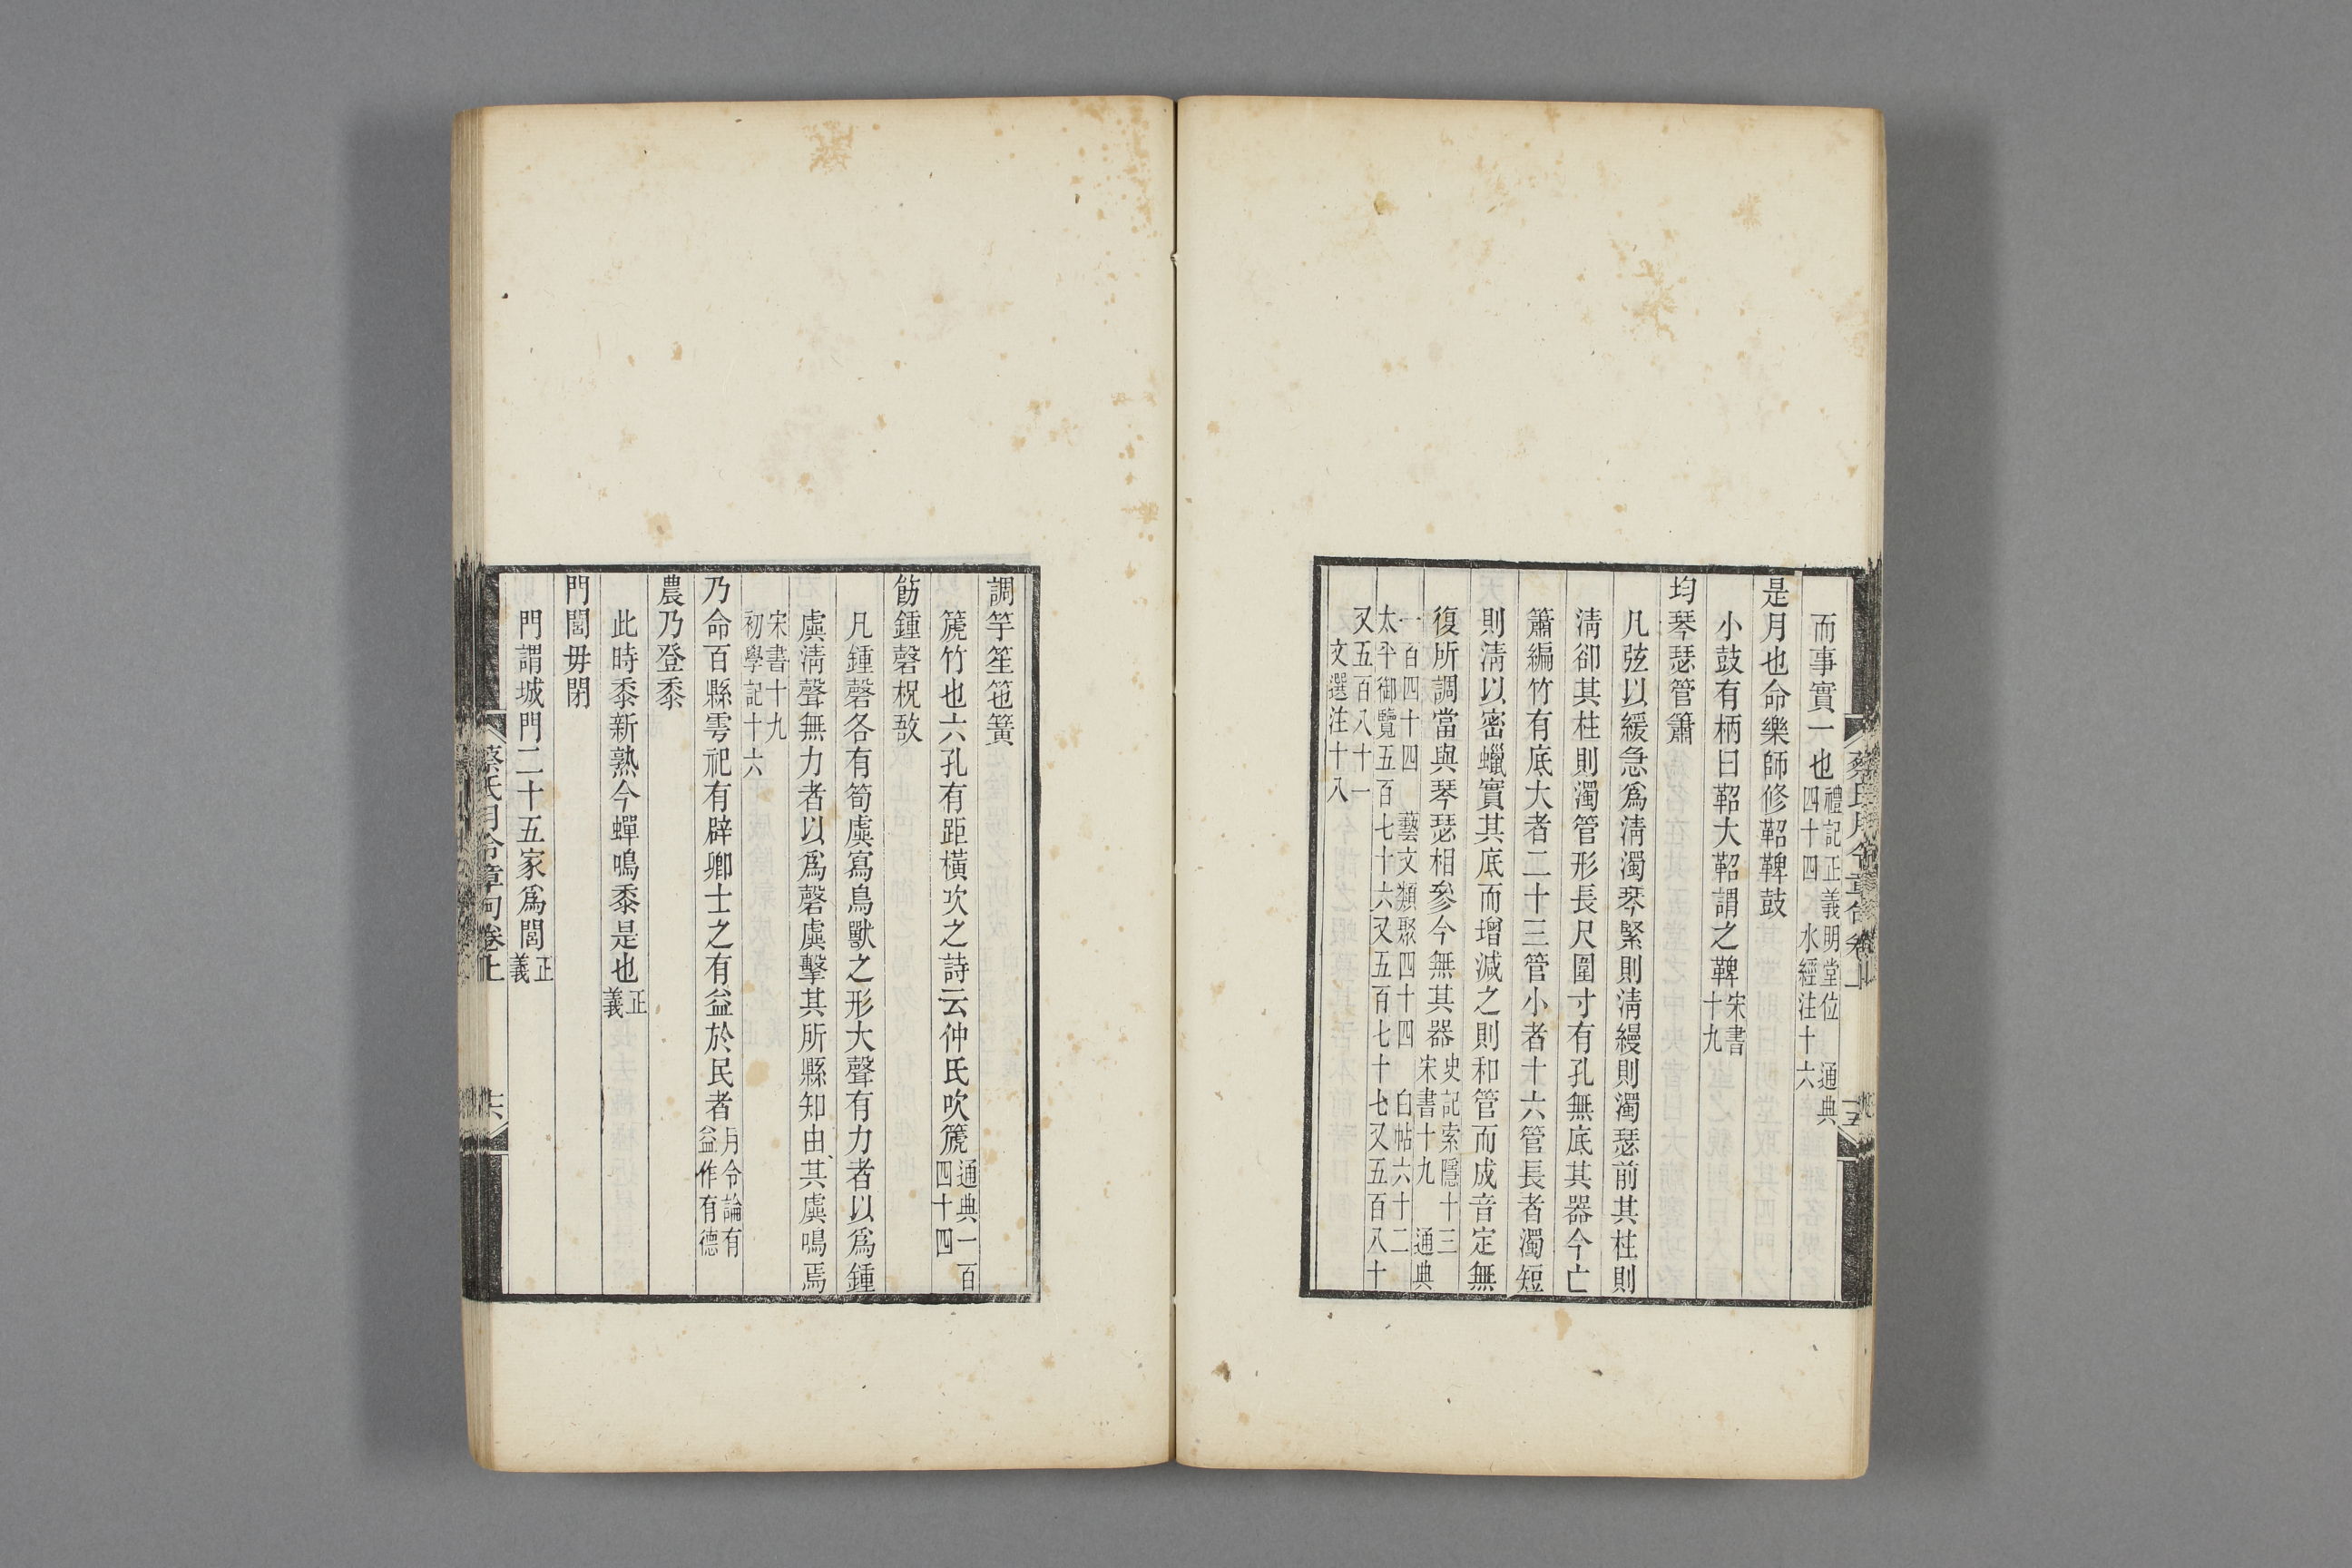 而事實一也禮記正義明堂位　通典四十四　水經注十六
是月也命樂師修鞀鞞鼓
小鼓有柄曰鞀大鞀謂之鞞宋書十九
均琴瑟管簫
凡弦以緩急爲淸濁琴緊則淸縵則濁瑟前其柱則
淸卻其柱則濁管形長尺圍寸有孔無底其器今亡
簫編竹有底大者二十三管小者十六管長者濁短
則淸以密蠟實其底而增減之則和管而成音定無
復所調當與琴瑟相參今無其器史記索隱十三宋書十九　通典
一百四十四　藝文類聚四十四　白帖六十二
太平御覽五百七十六又五百七十七又五百八十
又五百八十一
文選注十八
調竽笙竾簧
篪竹也六孔有距橫吹之詩云仲氏吹篪通典一百四十四
飭鍾磬柷敔
凡鍾磬各有筍虡寫鳥獸之形大聲有力者以爲鍾
虡淸聲無力者以爲磬虡擊其所縣知由其虡鳴焉
宋書十九
初學記十六
乃命百縣雩祀有辟卿士之有益於民者月令論有益作有德
農乃登黍
此時黍新熟今蟬鳴黍是也正義
門閭毋閉
門謂城門二十五家爲閭正義
蔡氏月令章句卷上